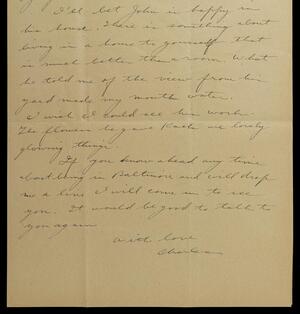 I'll bet John is happy in
his house. There is something about
living in a home to yourself that
is much better than a room. What
he told me of the view from his
yard made my mouth water.
I wish I could see his work.
The flowers he gave are lovely
glowing things.
If you know ahead any time
about being in Baltimore and will drop
me a line I will come in to see
you. It would be good to talk to
you again
With love
Charles